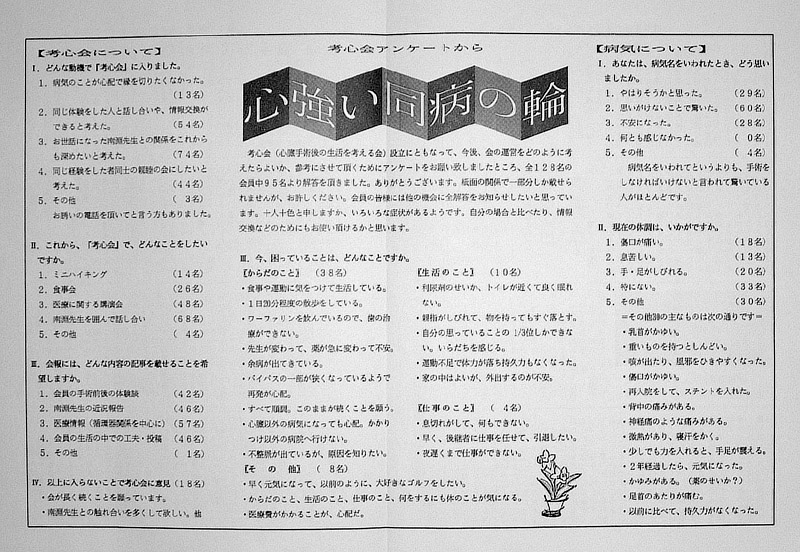 【考心会について】
Ⅰ．どんな動機で「考心会」に入りました。
1．病気のことが心配で縁を切りたくなかった。
(13名)
2．同じ体験をした人と話し合いや、情報交換が
できると考えた。 (54名)
3．お世話になった南淵先生との関係をこれから
も深めたいと考た。 (74名)
4．同じ経験をした者同士の親睦の会にしたいと
考えた。 (44名)
5．その他 ( 3名)
お誘いの電話を頂いてと言う方もありました。
Ⅱ．これから、「考心会」で、どんなことをしたい
ですか。
1．ミニハイキング (14名)
2．食事会 (26名)
3．医療に関する講演会 (48名)
4．南淵先生を囲んで話し合い (68名)
5．その他 ( 4名)
Ⅲ．会報には、どんな内容の記事を載せることを希
望しますか。
1．会員の手術前後の体験談 (42名)
2．南淵先生の近況報告 (46名)
3．医療情報（循環器関係を中心に） (57名)
4．会員の生活の中での工夫・投稿 (46名)
5．その他 ( 1名)
Ⅳ．以上に入らないことで考心会に意見 (18名)
・会が長く続くことを願っています。
・南淵先生との触れ合いを多くして欲しい。他
考心会アンケートから
心強い同病の輪
考心会（心臓手術後の生活を考える会）設立にともなって、今後、会の運営をどのように考
えたらよいか、参考にさせて頂くためにアンケートをお願い致しましたところ、全128名の
会員中95名より解答を頂きました。ありがとうございます。紙面の関係で一部分しか載せら
れませんが、お許しください。会員の皆様には他の機会に全解答をお知らせしたいと思ってい
ます。十人十色と申しますか、いろいろな症状があるようです。自分の場合と比べたり、情報
交換などのためにもお使い頂けるかと思います。
Ⅲ．今、困っていることは、どんなことですか。
【からだのこと】 (38名)
・食事や運動に気をつけて生活している。
・1日20分程度の散歩をしている。
・ワーファリンを飲んでいるので、歯の治
療ができない。
・先生が変わって、薬が急に変わって不安。
・余病が出てきている。
・バイパスの一部が狭くなっているようで
再発が心配。
・すべて順調。このままが続くことを願う。
・心臓以外の病気になっても心配。かかり
つけ以外の病院へ行けない。
・不整脈が出ているが、原因を知りたい。
【生活のこと】 (10名)
・利尿剤のせいか、トイレが近くて良く眠れ
ない。
・親指がしびれて、物を持ってもすぐ落とす。
・自分の思っていることの 1/3位しかできな
い。いらだちを感じる。
・運動不足で体力が落ち持久力もなくなった。
・家の中はよいが、外出するのが不安。
【仕事のこと】 ( 4名)
・息切れがして、何もできない。
・早く、後継者に仕事を任せて、引退したい。
・夜遅くまで仕事ができない。
【そ の 他】 ( 8名)
・早く元気になって、以前のように、大好きなゴルフをしたい。
・からだのこと、生活のこと、仕事のこと、何をするにも体のことが気になる。
・医療費がかかることが、心配だ。
【病気について】
Ⅰ．あなたは、病気名をいわれたとき、どう思い
ましたか。
1．やはりそうかと思った。 (29名)
2．思いがけないことで驚いた。 (60名)
3．不安になった。 (28名)
4．何とも感じなかった。 ( 0名)
5．その他 ( 4名)
病気名をいわれてというよりも、手術を
しなければいけないと言われて驚いている
人がほとんどです。
Ⅱ．現在の体調は、いかがですか。
1．傷口が痛い。 (18名)
2．息苦しい。 (13名)
3．手・足がしびれる。 (20名)
4．特にない。 (33名)
5．その他 (30名)
＝その他30の主なものは次の通りです＝
・乳首がかゆい。
・重いものを持つとしんどい。
・咳が出たり、風邪をひきやすくなった。
・傷口がかゆい。
・再入院をして、ステントを入れた。
・背中の痛みがある。
・神経痛のような痛みがある。
・微熱があり、寝汗をかく。
・少しでも力を入れると、手足が震える。
・2年経過したら、元気になった。
・かゆみがある。（薬のせいか？）
・足首のあたりが痛む。
・以前に比べて、持久力がなくなった。